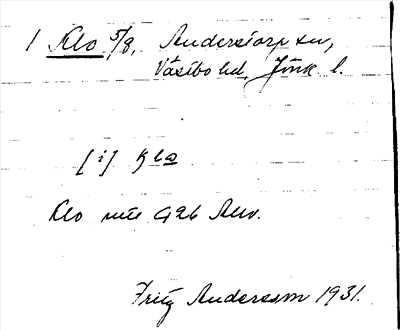 1 Klo 5/8, Anderstorp sn,
Västbo hd, Jönk l.
[i] Klo
Klo 926
Fritz Andersson 1931.